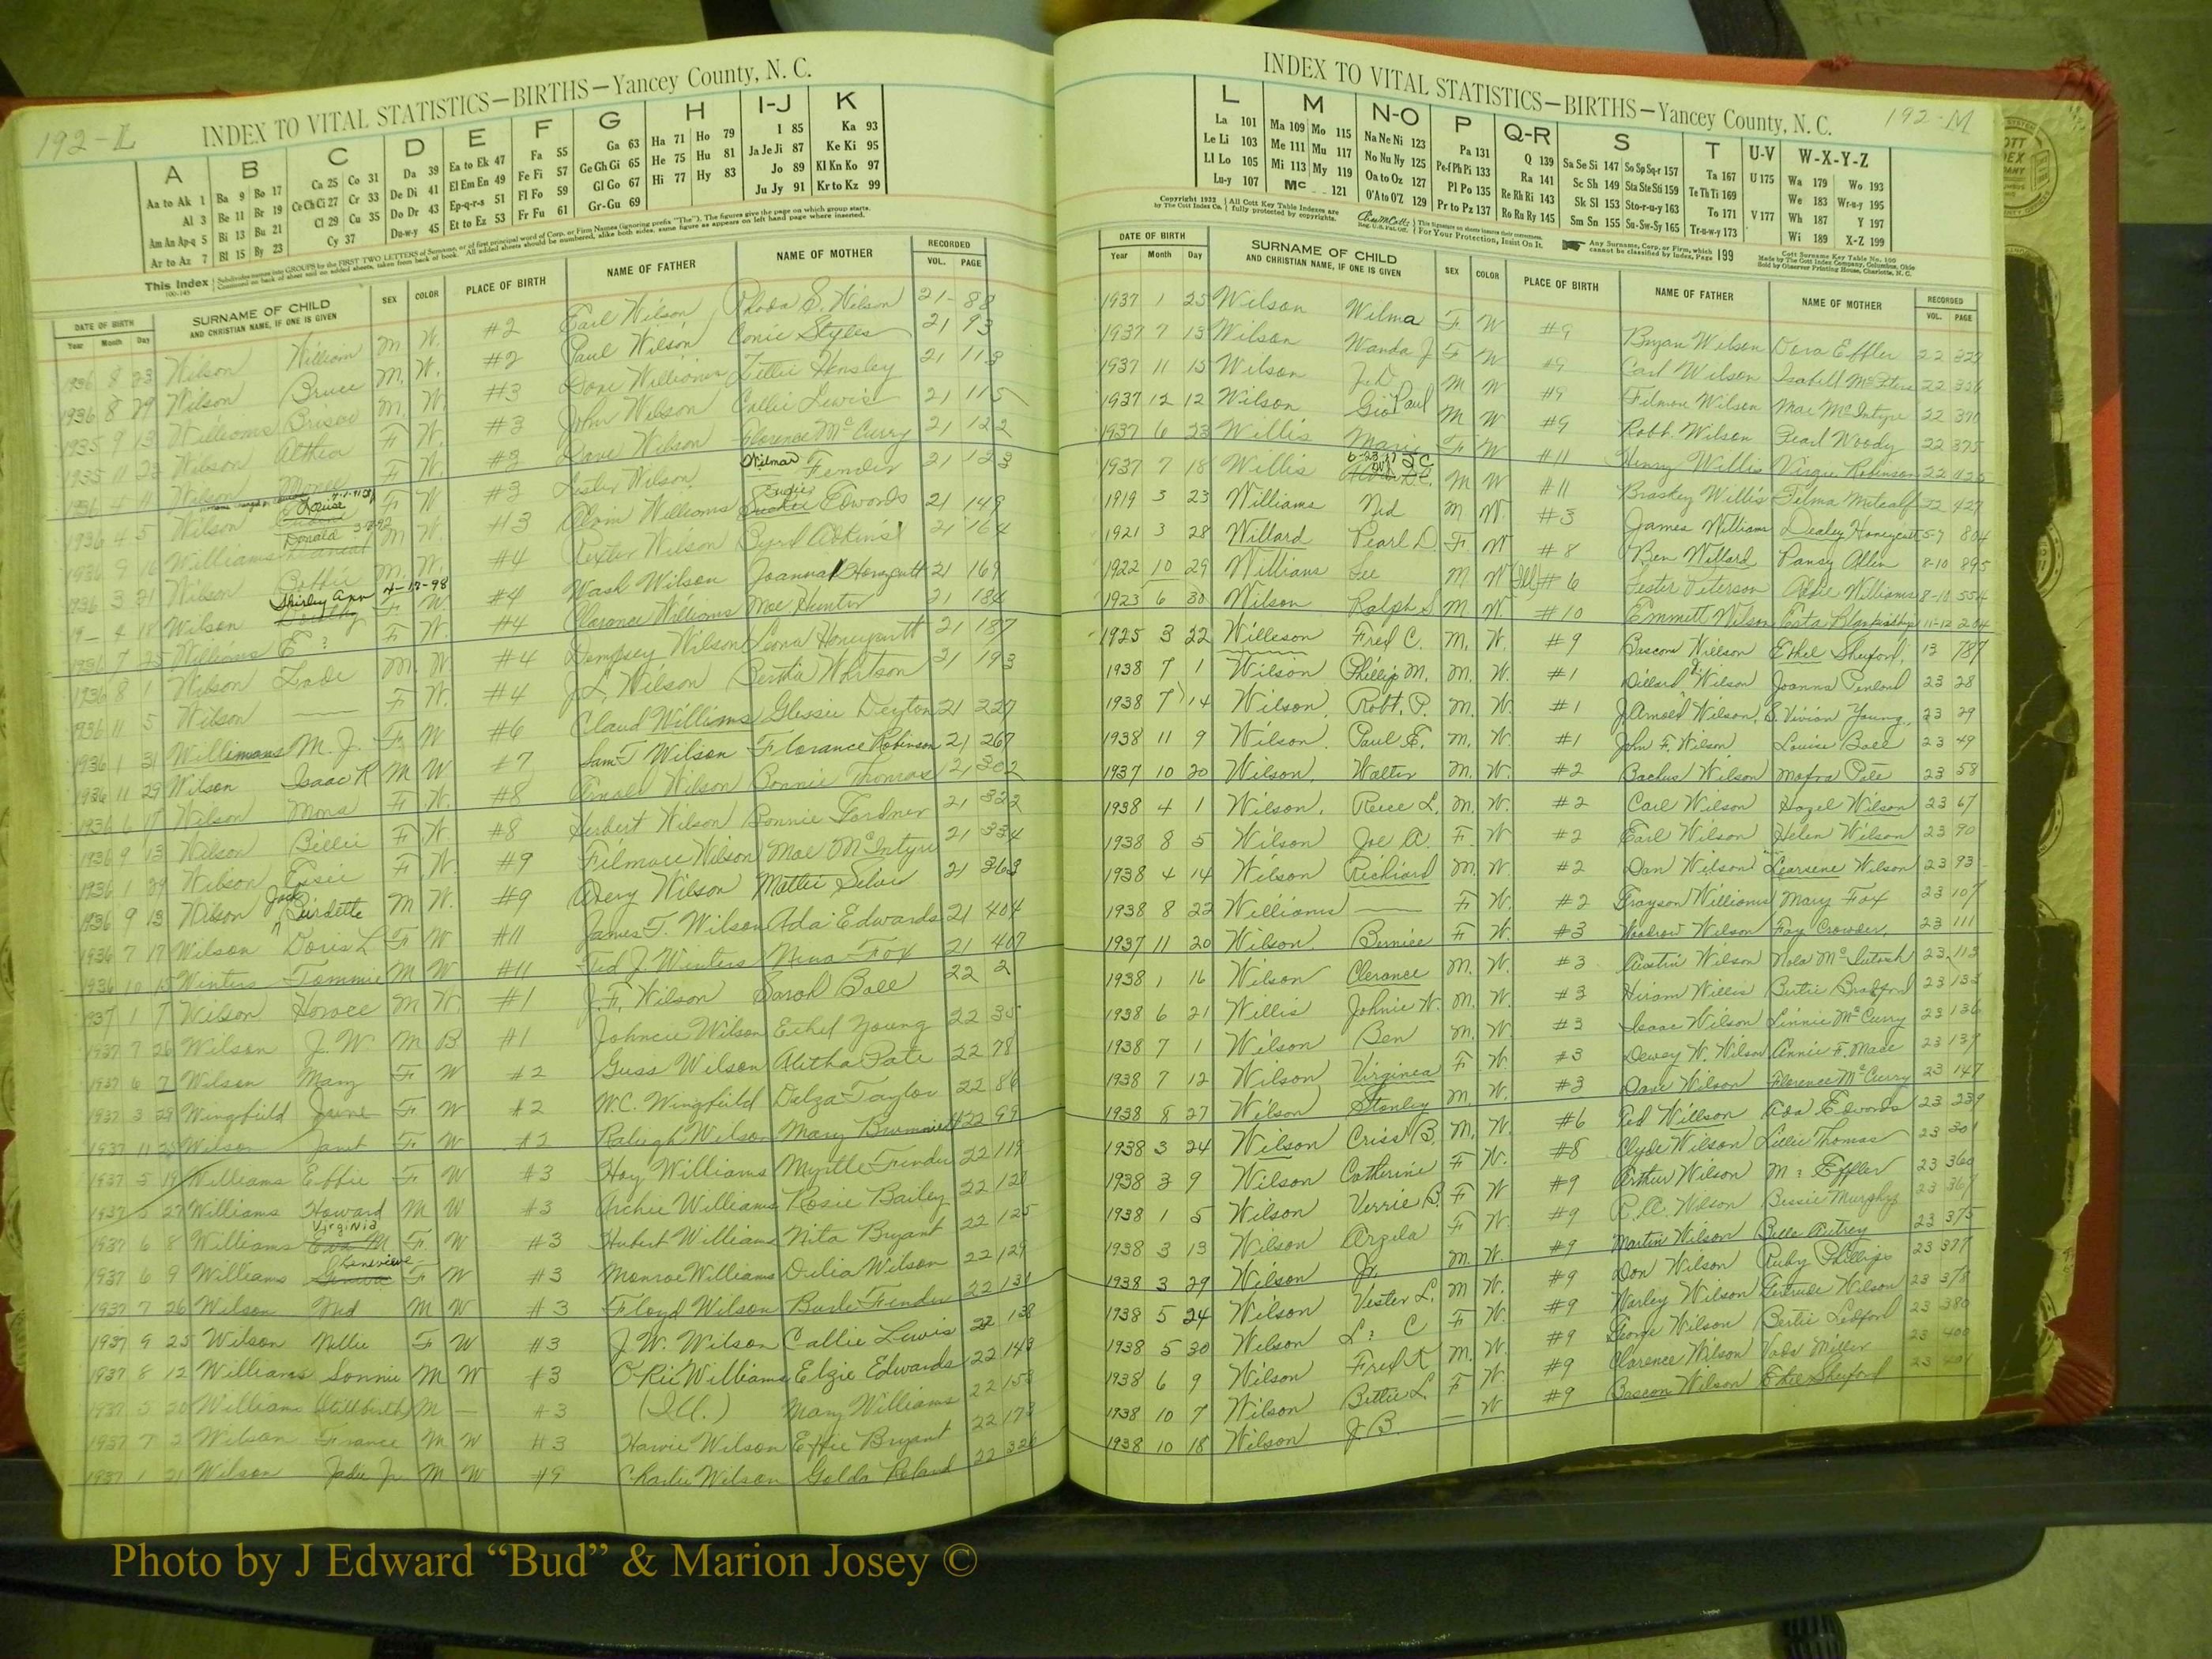 192-L
INDEX TO VITAL STATISTICS—BIRTHS—Yancey County, N. C.
A B C D E F G H I-J K
Aa to Ak 1 Ba 9 Bo 17 Ca 25 Co 31 Da 39 Ea to Ek 47 Fa 55 Ga 63 Ha 71 Ho 79 I 85 Ka 93
Al 3 Be 11 Br 19 Ce Ch Ci 27 Cr 33 De Di 41 El Em En 49 Fe Fi 57 Ge Gh Gi 65 He 75 Hu 81 Ja Je Ji 87 Ke Ki 95
Am An Ap-q 5 Bi 13 Bu 21 Cl 29 Cu 35 Do Dr 43 Ep-q-r-s 51 Fl Fo 59 Gl Go 67 Hi 77 Hy 83 Jo 89 Kl Kn Ko 97
Ar to Az 7 Bl 15 By 23 Cy 37 Du-w-y 45 Et to Ez 53 Fr Fu 61 Gr-Gu 69 Ju Jy 91 Kr to Kz 99
This Index
DATE OF BIRTH SURNAME OF CHILD SEX COLOR PLACE OF BIRTH NAME OF FATHER NAME OF MOTHER RECORDED
Year Month Day AND CHRISTIAN NAME, IF ONE IS GIVEN VOL. PAGE
1936 8 23 Wilson William M W. #2 Earl Wilson Rhoda S. Wilson 21 88
1936 8 29 Wilson Bruce M. W. #2 Paul Wilson Conie Styles 21 93
1935 9 13 Williams M. W. #3 Dove Williams Tillie Hensley 21 113
1935 11 23 Wilson Althea F W. #3 John Wilson Callie Lewis 21 115
1936 4 11 Wilson F W. #3 Dave Wilson Florence McCurry 21 122
1936 4 5 Wilson Louise F W #3 Lester Wilson Wilma Fender 21 123
1936 9 16 Williams Donald M W. #3 Alvin Williams Edwards 21 149
1936 3 21 Wilson M. W. #4 Rexter Wilson Byrd Adkins 21 164
19— 4 18 Wilson Shirley Ann 4-17-98 F W. #4 Wash Wilson Joanna Honeycutt 21 169
1936 7 25 Williams E ? F W. #4 Clarence Williams Mae Hunter 21 184
1936 8 1 Wilson Zade M. W. #4 Dempsey Wilson Leona Honeycutt 21 187
1936 11 5 Wilson — F W. #4 J.L. Wilson Bertha Whitson 21 193
1936 1 31 Willimans M. J. F W #6 Claud Williams Glessie Deyton 21 227
1936 11 29 Wilson Isaac R M W #7 Sam T Wilson Florance Robinson 21 267
1936 6 17 Wilson Mona F W. #8 Arnold Wilson Bonnie Thomas 21 302
1936 9 13 Wilson Billie F W. #8 Herbert Wilson Bonnie Gardner 21 322
1936 1 29 Wilson Elsie F W. #9 Filmore Wilson Mae McIntyre 21 334
1936 9 13 Wilson Jack Burdette M W. #9 Avery Wilson Mattie Silver 21 363
1936 7 17 Wilson Doris L F W #11 James T. Wilson Ada Edwards 21 404
1936 10 15 Winters Tommie M W #11 Ted J. Winters Nina Fox 21 407
1937 1 7 Wilson Horace M W. #1 J.F. Wilson Sarah Ball 22 2
1937 7 26 Wilson J. W. M B #1 Johncie Wilson Ethel Young 22 35
1937 6 7 Wilson Mary F W #2 Guss Wilson Alitha Pate 22 78
1937 3 29 Wingfield June F W #2 W.C. Wingfield Dalza Taylor 22 86
1937 11 25 Wilson Janet F W #2 Raliegh Wilson Mary 22 99
1937 5 19 Williams Effie F W #3 Hoy Williams Myrtle Fender 22 119
1937 5 27 Williams Howard M W #3 Archie Williams Rosie Bailey 22
1937 6 8 Williams Virginia Eva M F W #3 Hubert Williams Nita Bryant 22 125
1937 6 9 Williams Genevieve Geneva F W #3 Monroe Williams Delia Wilson 22 129
1937 7 26 Wilson Ned M W #3 Floyd Wilson Fender 22 131
1937 9 25 Wilson Nellie F W #3 J. W. Wilson Callie Lewis 22 138
1937 8 12 Williams Sonnie M W #3 Williams Elzie Edwards 22 143
1937 5 20 Williams (Stillbirth) M — #3 (Ill.) Mary Williams 22 153
1937 7 2 Wilson France M W #3 Harve Wilson Effie Bryant 22 173
1937 1 21 Wilson Jadie Jr M W #9 Charlie Wilson Golda Roland 22 326
192-M
INDEX TO VITAL STATISTICS—BIRTHS—Yancey County, N. C.
L M N-O P Q-R S T U-V W-X-Y-Z
La 101 Ma 109 Mo 115 Na Ne Ni 123 Pa 131 Q 139 Sa Se Si 147 So Sp Sq-r 157 Ta 167 U 175 Wa 179 Wo 193
Le Li 103 Me 111 Mu 117 No Nu Ny 125 Pe-f Ph Pi 133 Ra 141 Sc Sh 149 Sta Ste Sti 159 Te Th Ti 169 We 183 Wr-u-y 195
Ll Lo 105 Mi 113 My 119 Oa to Oz 127 Pl Po 135 Re Rh Ri 143 Sk Sl 153 Sto-r-u-y 163 To 171 V 177 Wh 187 Y 197
Lu-y 107 Mc 121 O'A to O'Z 129 Pr to Pz 137 Ro Ru Ry 145 Sm Sn 155 Su-Sw-Sy 165 Tr-u-w-y 173 Wi 189 X-Z 199
Copyright 1932 by The Cott Index Co. All Cott Key Table Indexes are fully protected by copyrights. For Your Protection, Insist On It. Any Surname, Corp. or Firm, which cannot be classified by Index, Page 199
DATE OF BIRTH SURNAME OF CHILD SEX COLOR PLACE OF BIRTH NAME OF FATHER NAME OF MOTHER RECORDED
Year Month Day AND CHRISTIAN NAME, IF ONE IS GIVEN VOL. PAGE
1937 1 25 Wilson Wilma F W #9 Bryan Wilson Dora Effler 22
1937 7 13 Wilson Wanda J F W #9 Carl Wilson Isabell McPeters 22
1937 11 15 Wilson J.D. M W #9 Filmon Wilson Mae McIntyre 22 370
1937 12 12 Wilson Gio Paul M W #9 Robt. Wilson Pearl Woody 22 375
1937 6 23 Willis Marie F W #11 Henry Willis Virgie Robinson 22 425
1937 7 18 Willis M W #11 Braskey Willis Telma Metcalf 22 427
1919 3 23 Williams Ned M W. #3 James Williams Dealey Honeycutt 5-7 804
1921 3 28 Willard Pearl D. F W #8 Ben Willard Pansy Allen 8-10 895
1922 10 29 Williams Lee M W (Ill) #6 Lester Peterson Addie Williams 8-10 554
1923 6 30 Wilson Ralph S M W. #10 Emmett Wilson Esta Blankenship 11-12 204
1925 3 22 Willeson Fred C. M. W. #9 Bascom Willson Ethel Shuford 13 787
1938 7 1 Wilson Phillip M. M. W. #1 Dillard Wilson Joanna Penland 23 28
1938 7 14 Wilson Robt. P. M. W. #1 J Arnold Wilson B. Vivian Young 23 29
1938 11 9 Wilson Paul E. M. W. #1 John F. Wilson Louise Ball 23 49
1937 10 20 Wilson Walter M. W. #2 Bachus Wilson Mafra Pate 23 58
1938 4 1 Wilson Reece L. M. W. #2 Carl Wilson Hazel Wilson 23 67
1938 8 5 Wilson Joe A. F. W #2 Earl Wilson Helen Wilson 23 90
1938 4 14 Wilson Richard M. W. #2 Dan Wilson Learsene Wilson 23 93
1938 8 22 Williams — F W. #2 Grayson Williams Mary Fox 23 107
1937 11 20 Wilson Bernice F W. #3 Woodrow Wilson Fay Crowder 23 111
1938 1 16 Wilson Clerance M. W. #3 Austin Wilson Nola McIntosh 23 113
1938 6 21 Willis Johnie W. M. W. #3 Hiram Willis Bertie Bradford 23 133
1938 7 1 Wilson Ben M. W. #3 Isaac Wilson Linnie McCurry 23 136
1938 7 12 Wilson Virginia F W. #3 Dewey W. Wilson Annie F. Mace 23 137
1938 8 27 Wilson Stanley M. W. #3 Dave Wilson Florence McCurry 23 147
1938 3 24 Wilson Criss B. M. W. #6 Ted Willson Ada Edwards 23 239
1938 3 9 Wilson Catherine F W. #8 Clyde Wilson Lillie Thomas 23 301
1938 1 5 Wilson Verrie B. F W #9 Arthur Wilson M ? Effler 23 360
1938 3 13 Wilson Arzela F W. #9 R.A. Wilson Bessie Murphy 23 367
1938 3 29 Wilson Jr. M. W. #9 Martin Wilson Belle Autrey 23 375
1938 5 24 Wilson Vester L. M W. #9 Don Wilson Ruby Phillips 23 377
1938 5 30 Wilson L ? C F W. #9 Harley Wilson Gertrude Wilson 23 378
1938 6 9 Wilson Fred K M. W. #9 George Wilson Bertie Ledford 23 380
1938 10 7 Wilson Bettie L. F W. #9 Clarence Wilson Vada Miller 23 400
1938 10 18 Wilson J. B. — W #9 Bascon Wilson Ethel Shuford 23 401
Photo by J Edward “Bud” & Marion Josey ©